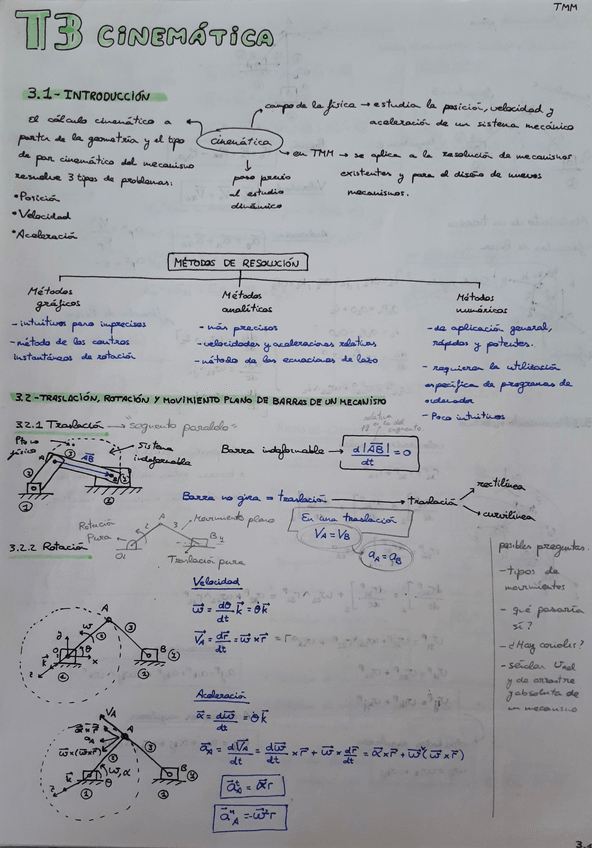 TMM
T3 CINEMÁTICA
3.1- INTRODUCCIÓN
El cálculo cinemático a
partir de la geometría y el tipo
de par cinemático del mecanismo
resuelve 3 tipos de problemas:
• Posición
• Velocidad
• Aceleración
cinemática
campo de la física → estudia la posición, velocidad y
aceleración de un sistema mecánico
en TMM → se aplica a la resolución de mecanismos
existentes y para el diseño de nuevos
mecanismos.
paso previo
al estudio
dinámico
MÉTODOS DE RESOLUCIÓN
Métodos
gráficos
- intuitivos pero imprecisos
- método de los centros
instantáneos de rotación
Métodos
analíticos
- más precisos
- velocidades y aceleraciones relativas
- método de las ecuaciones de lazo
Métodos
numéricos
- de aplicación general,
rápidos y potentes.
- requieren la utilización
específica de programas de
ordenador
- Poco intuitivos
3.2- TRASLACIÓN, ROTACIÓN Y MOVIMIENTO PLANO DE BARRAS DE UN MECANISMO
3.2.1 Traslación → "segmento paralelo"
Sistema
indeformable
A
AB
Barra indeformable → d|AB|/dt = 0
Barra no gira = traslación → traslación
rectilínea
curvilínea
En una traslación
V_A = V_B
a_A = a_B
Rotación
Pura
Movimiento plano
Traslación pura
3.2.2 Rotación
Velocidad
w⃗ = dθ/dt k⃗ = θ̇ k⃗
V⃗_A = dr⃗/dt = w⃗ × r⃗
Aceleración
α⃗ = dw⃗/dt = θ̈ k⃗
a⃗_A = dV⃗_A/dt = dw⃗/dt × r⃗ + w⃗ × dr⃗/dt = α⃗ × r⃗ + w⃗ × (w⃗ × r⃗)
a⃗ᵗ_A = α⃗ r
a⃗ⁿ_A = -w⃗² r
posibles preguntas:
- tipos de
movimientos
- qué pasaría
si?
- ¿Hay coriolis?
- señalar V_rel
y de arrastre
y absoluta de
un mecanismo